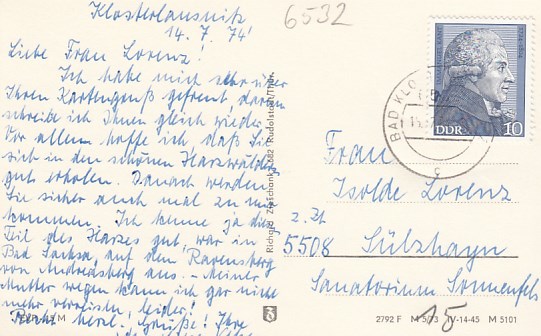 Klosterlausnitz
14. 7. 74'
6532
Liebe Frau Lorenz!
Ich habe mich sehr über
Ihren Kartengruß gefreut, darum
schreibe ich Ihnen gleich wieder.
Vor allem hoffe ich, daß Sie
sich in den schönen Harzwäldern
gut erholen. Danach werden
Sie sicher auch mal zu mir
kommen. Ich kenne ja diesen
Teil des Harzes gut, war in
Bad Sachsa, auf dem Ravensberg
von Andreasberg aus. - Meiner
Mutter wegen kann ich gar nicht
mehr verreisen, leider!
Recht herzl. Grüße! Ihre
DDR 10
BAD KLO
Frau
Isolde Lorenz
z. Zt
5508 Sülzhayn
Sanatorium Sonnenfels
682 Rudolstadt/Thür.
15
2792 F M 5/73 IV-14-45 M 5101